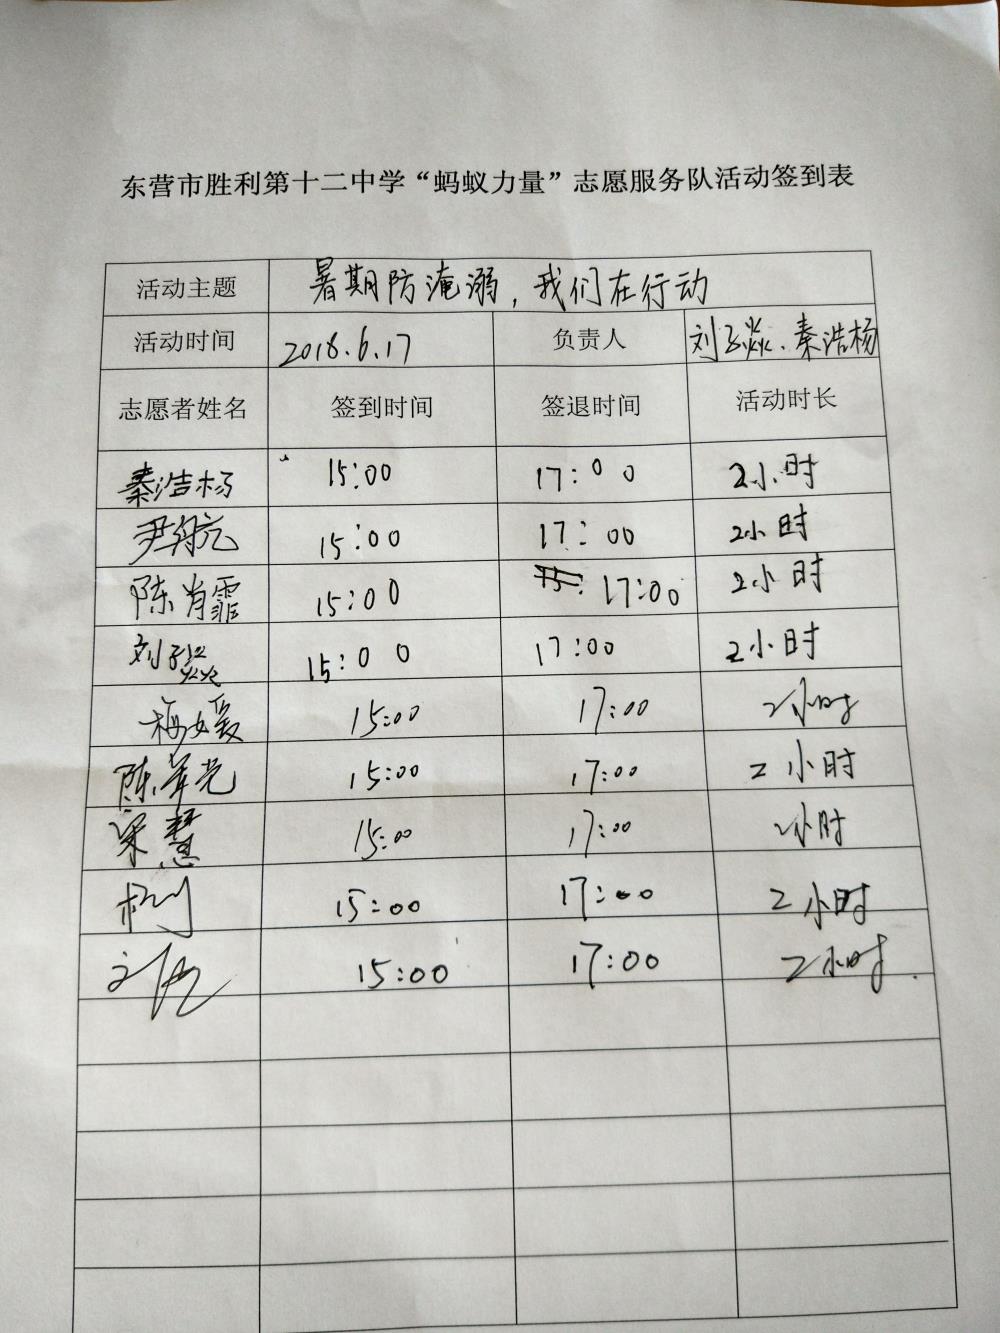 东营市胜利第十二中学“蚂蚁力量”志愿服务队活动签到表
活动主题 暑期防淹溺,我们在行动
活动时间 2018.6.17 负责人 刘子焱、秦浩杨
志愿者姓名 签到时间 签退时间 活动时长
秦浩杨 15:00 17:00 2小时
尹航 15:00 17:00 2小时
陈肖霏 15:00 17:00 2小时
刘子焱 15:00 17:00 2小时
15:00 17:00 2小时
陈 15:00 17:00 2小时
梁慧 15:00 17:00 2小时
15:00 17:00 2小时
15:00 17:00 2小时.